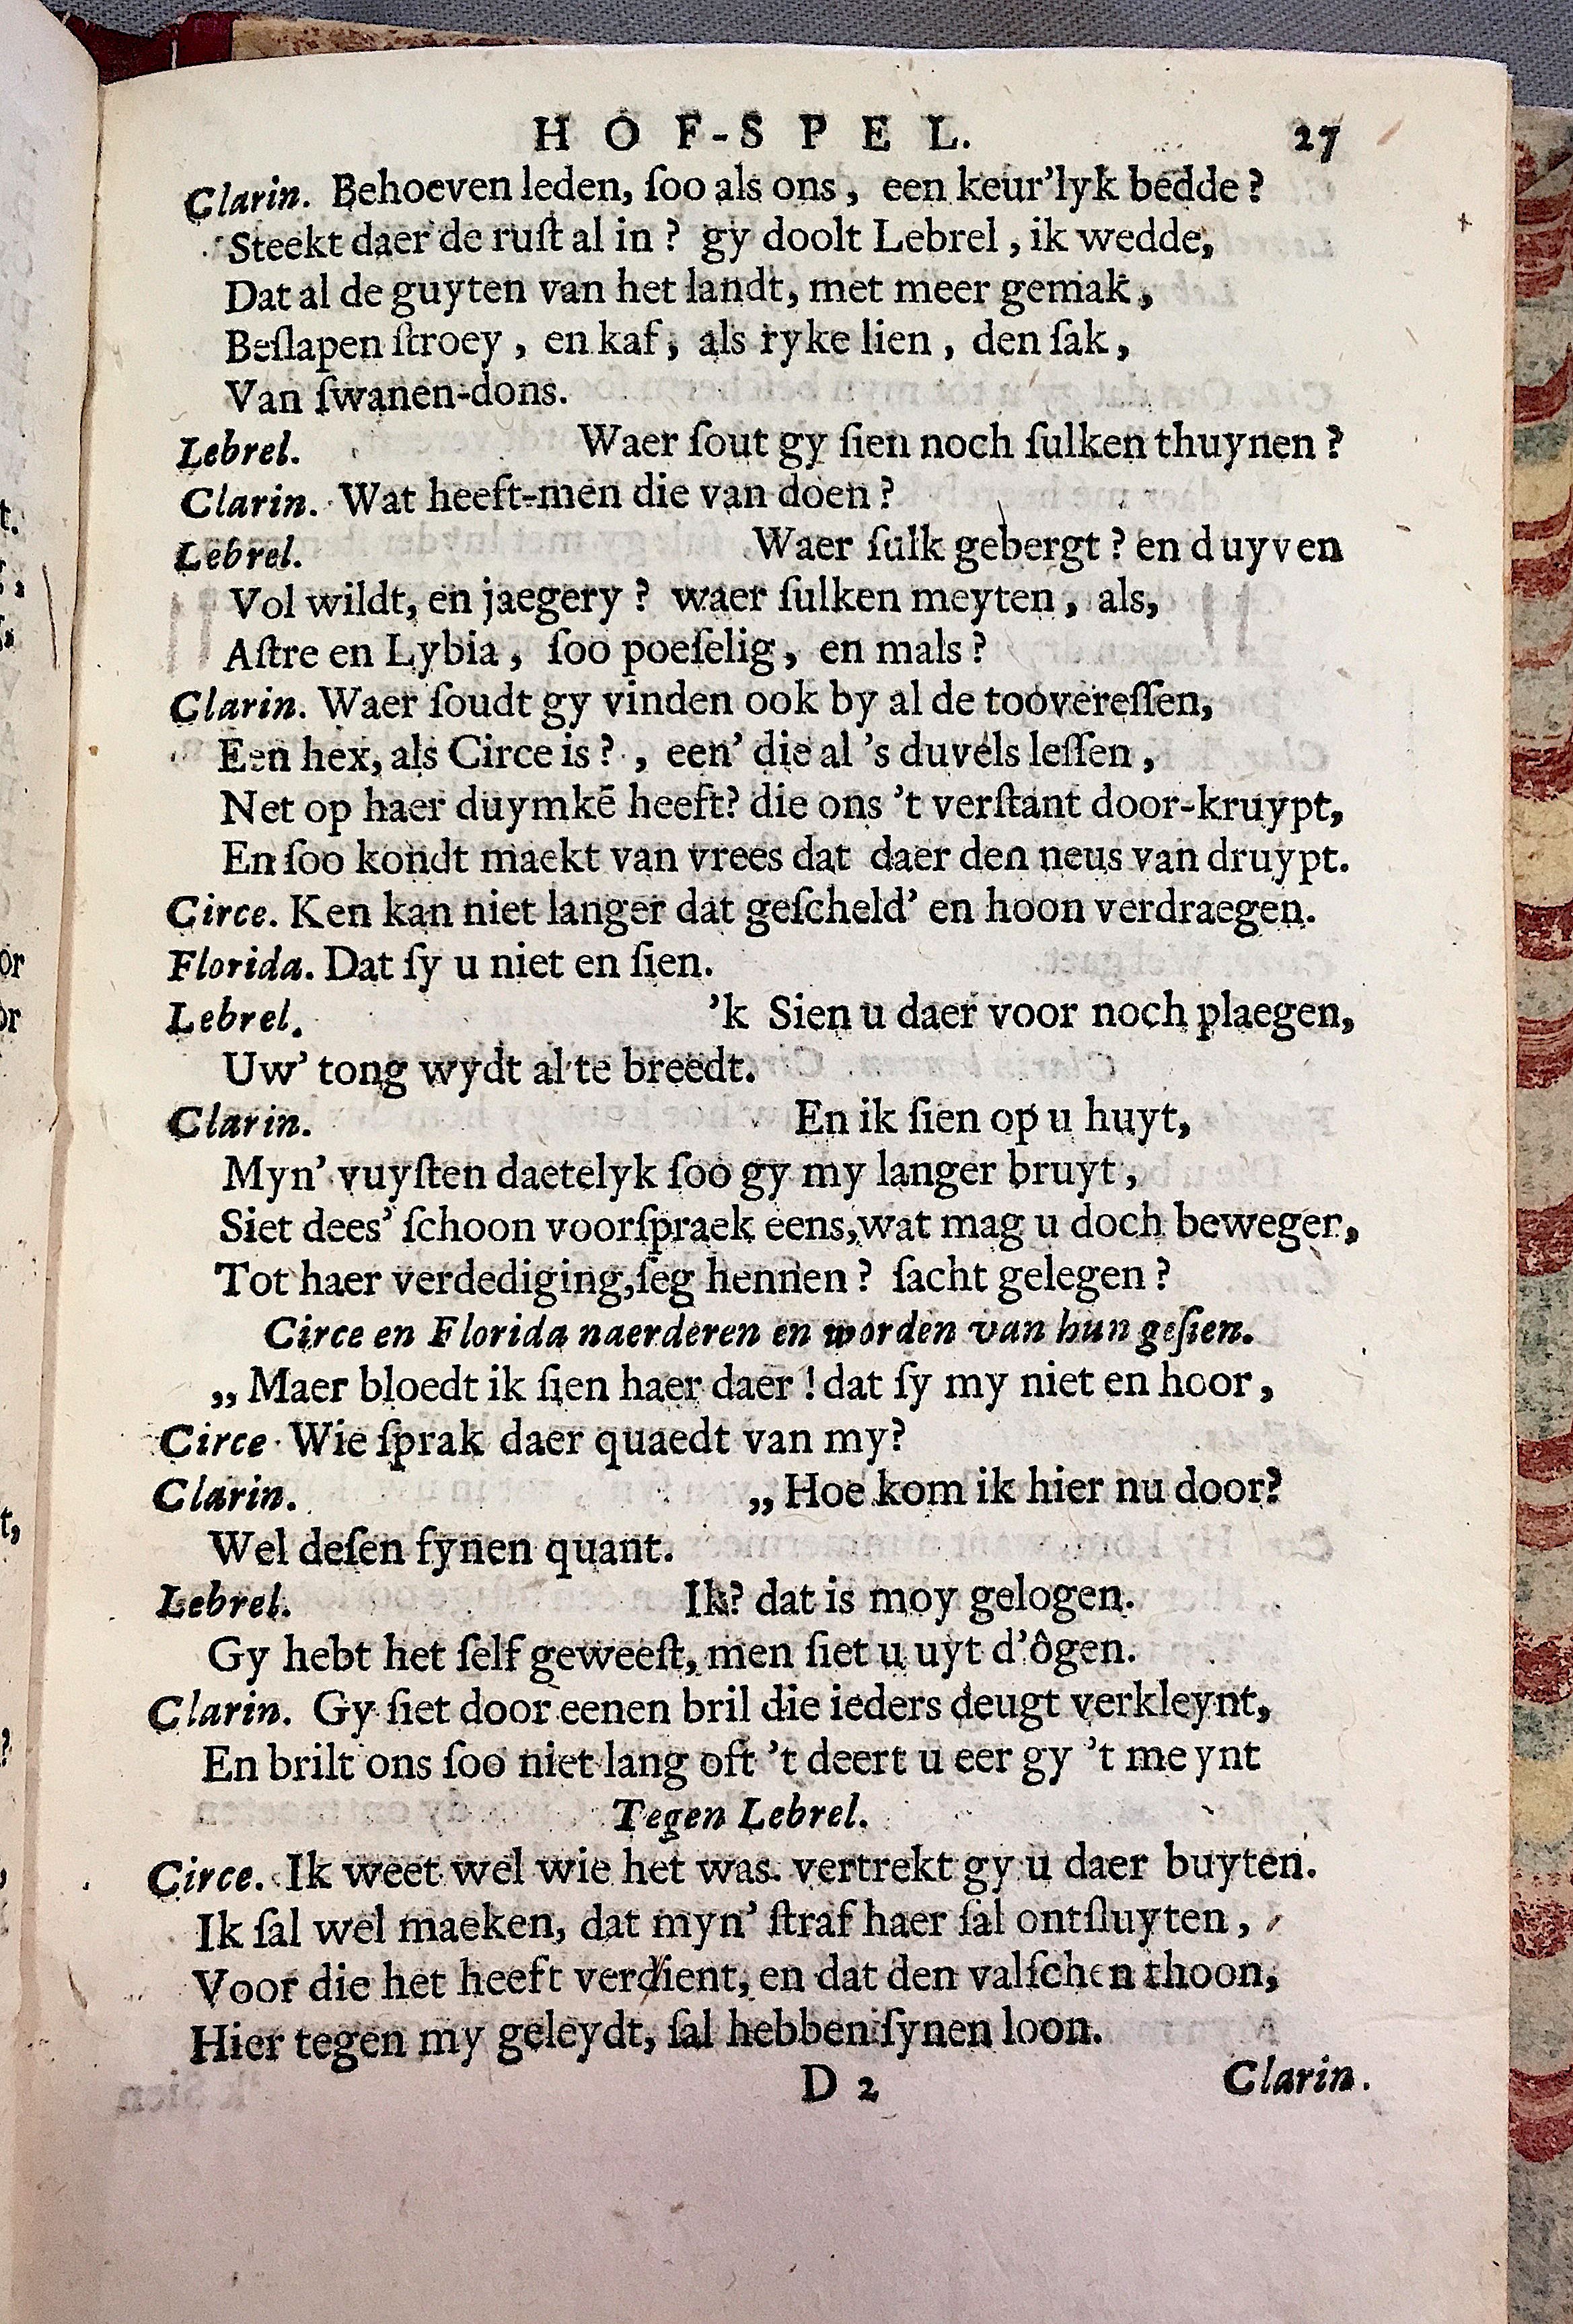 HOF-SPEL. 27
Clarin. Behoeven leden, ſoo als ons, een keur'lyk bedde?
Steekt daer de ruſt al in? gy doolt Lebrel, ik wedde,
Dat al de guyten van het landt, met meer gemak,
Beſlapen ſtroey, en kaf, als ryke lien, den ſak,
Van ſwanen-dons.
Lebrel. Waer ſout gy ſien noch ſulken thuynen?
Clarin. Wat heeft-men die van doen?
Lebrel. Waer ſulk gebergt? en duyven
Vol wildt, en jaegery? waer ſulken meyten, als,
Aſtre en Lybia, ſoo poeſelig, en mals?
Clarin. Waer ſoudt gy vinden ook by al de toovereſſen,
Een hex, als Circe is?, een' die al 's duvels leſſen,
Net op haer duymkē heeft? die ons 't verſtant door-kruypt,
En ſoo kondt maekt van vrees dat daer den neus van druypt.
Circe. Ken kan niet langer dat geſcheld' en hoon verdraegen.
Florida. Dat ſy u niet en ſien.
Lebrel. 'k Sien u daer voor noch plaegen,
Uw' tong wydt al te breedt.
Clarin. En ik ſien op u huyt,
Myn' vuyſten daetelyk ſoo gy my langer bruyt,
Siet dees' ſchoon voorſpraek eens, wat mag u doch beweger,
Tot haer verdediging, ſeg hennen? ſacht gelegen?
Circe en Florida naerderen en worden van hun geſien.
„ Maer bloedt ik ſien haer daer! dat ſy my niet en hoor,
Circe Wie ſprak daer quaedt van my?
Clarin. „ Hoe kom ik hier nu door?
Wel deſen fynen quant.
Lebrel. Ik? dat is moy gelogen.
Gy hebt het ſelf geweeſt, men ſiet u uyt d'ôgen.
Clarin. Gy ſiet door eenen bril die ieders deugt verkleynt,
En brilt ons ſoo niet lang oft 't deert u eer gy 't meynt
Tegen Lebrel.
Circe. Ik weet wel wie het was. vertrekt gy u daer buyten.
Ik ſal wel maeken, dat myn' ſtraf haer ſal ontſluyten,
Voor die het heeft verdient, en dat den valſchen thoon,
Hier tegen my geleydt, ſal hebben ſynen loon.
D 2 Clarin.